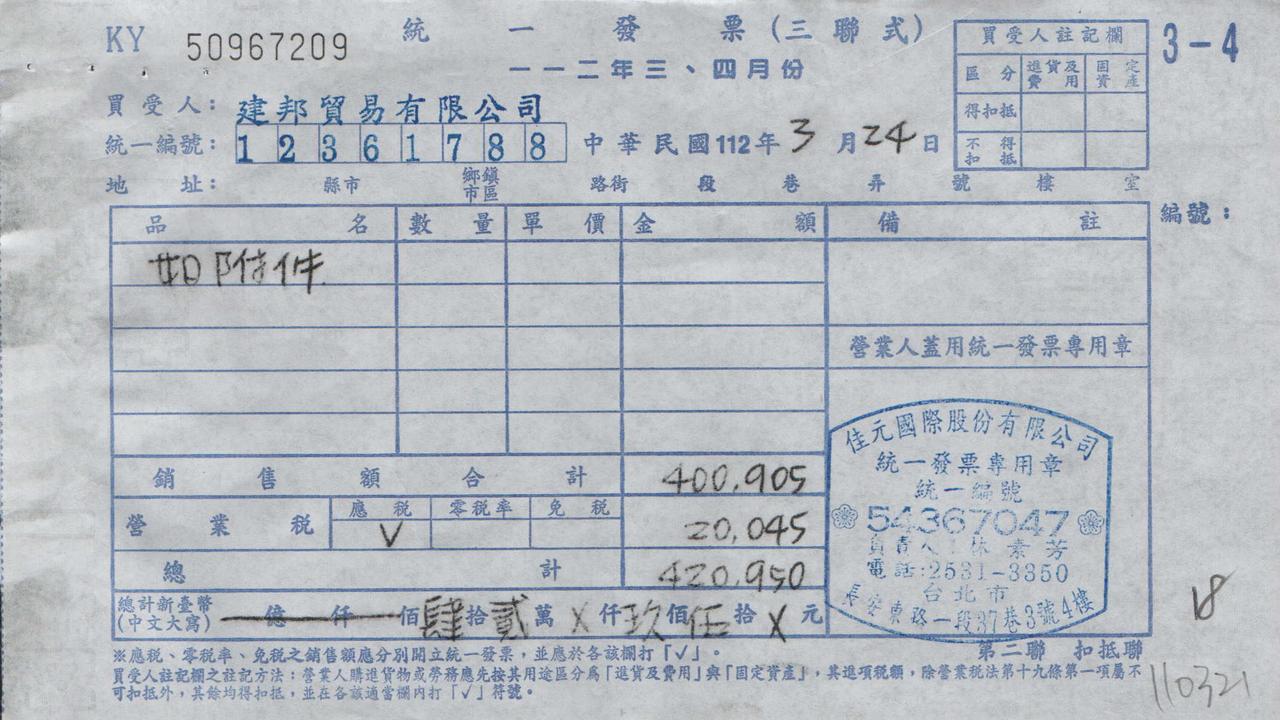 KY 50967209
統一發票(三聯式)
一一二年三、四月份
買受人註記欄
區分 進貨及費用 固定資產
得扣抵
不得扣抵
3-4
買受人：建邦貿易有限公司
統一編號：12361788 中華民國112年3月24日
地址： 縣市 鄉鎮市區 路街 段 巷 弄 號 樓 室
品名 數量 單價 金額 備註 編號：
如附件
營業人蓋用統一發票專用章
銷售額合計 400,905
營業稅 應稅 V 零稅率 免稅 20,045
總計 420,950
總計新臺幣(中文大寫) 億仟佰肆拾貳萬X仟玖佰伍拾X元
佳元國際股份有限公司
統一發票專用章
統一編號
54367047
負責人：林素芳
電話：2531-3350
台北市
長安東路一段37巷3號4樓
第二聯 扣抵聯
18
110321
※應稅、零稅率、免稅之銷售額應分別開立統一發票，並應於各該欄打「✓」。
買受人註記欄之註記方法：營業人購進貨物或勞務應先按其用途區分為「進貨及費用」與「固定資產」，其進項稅額，除營業稅法第十九條第一項屬不
可扣抵外，其餘均得扣抵，並在各該適當欄內打「✓」符號。